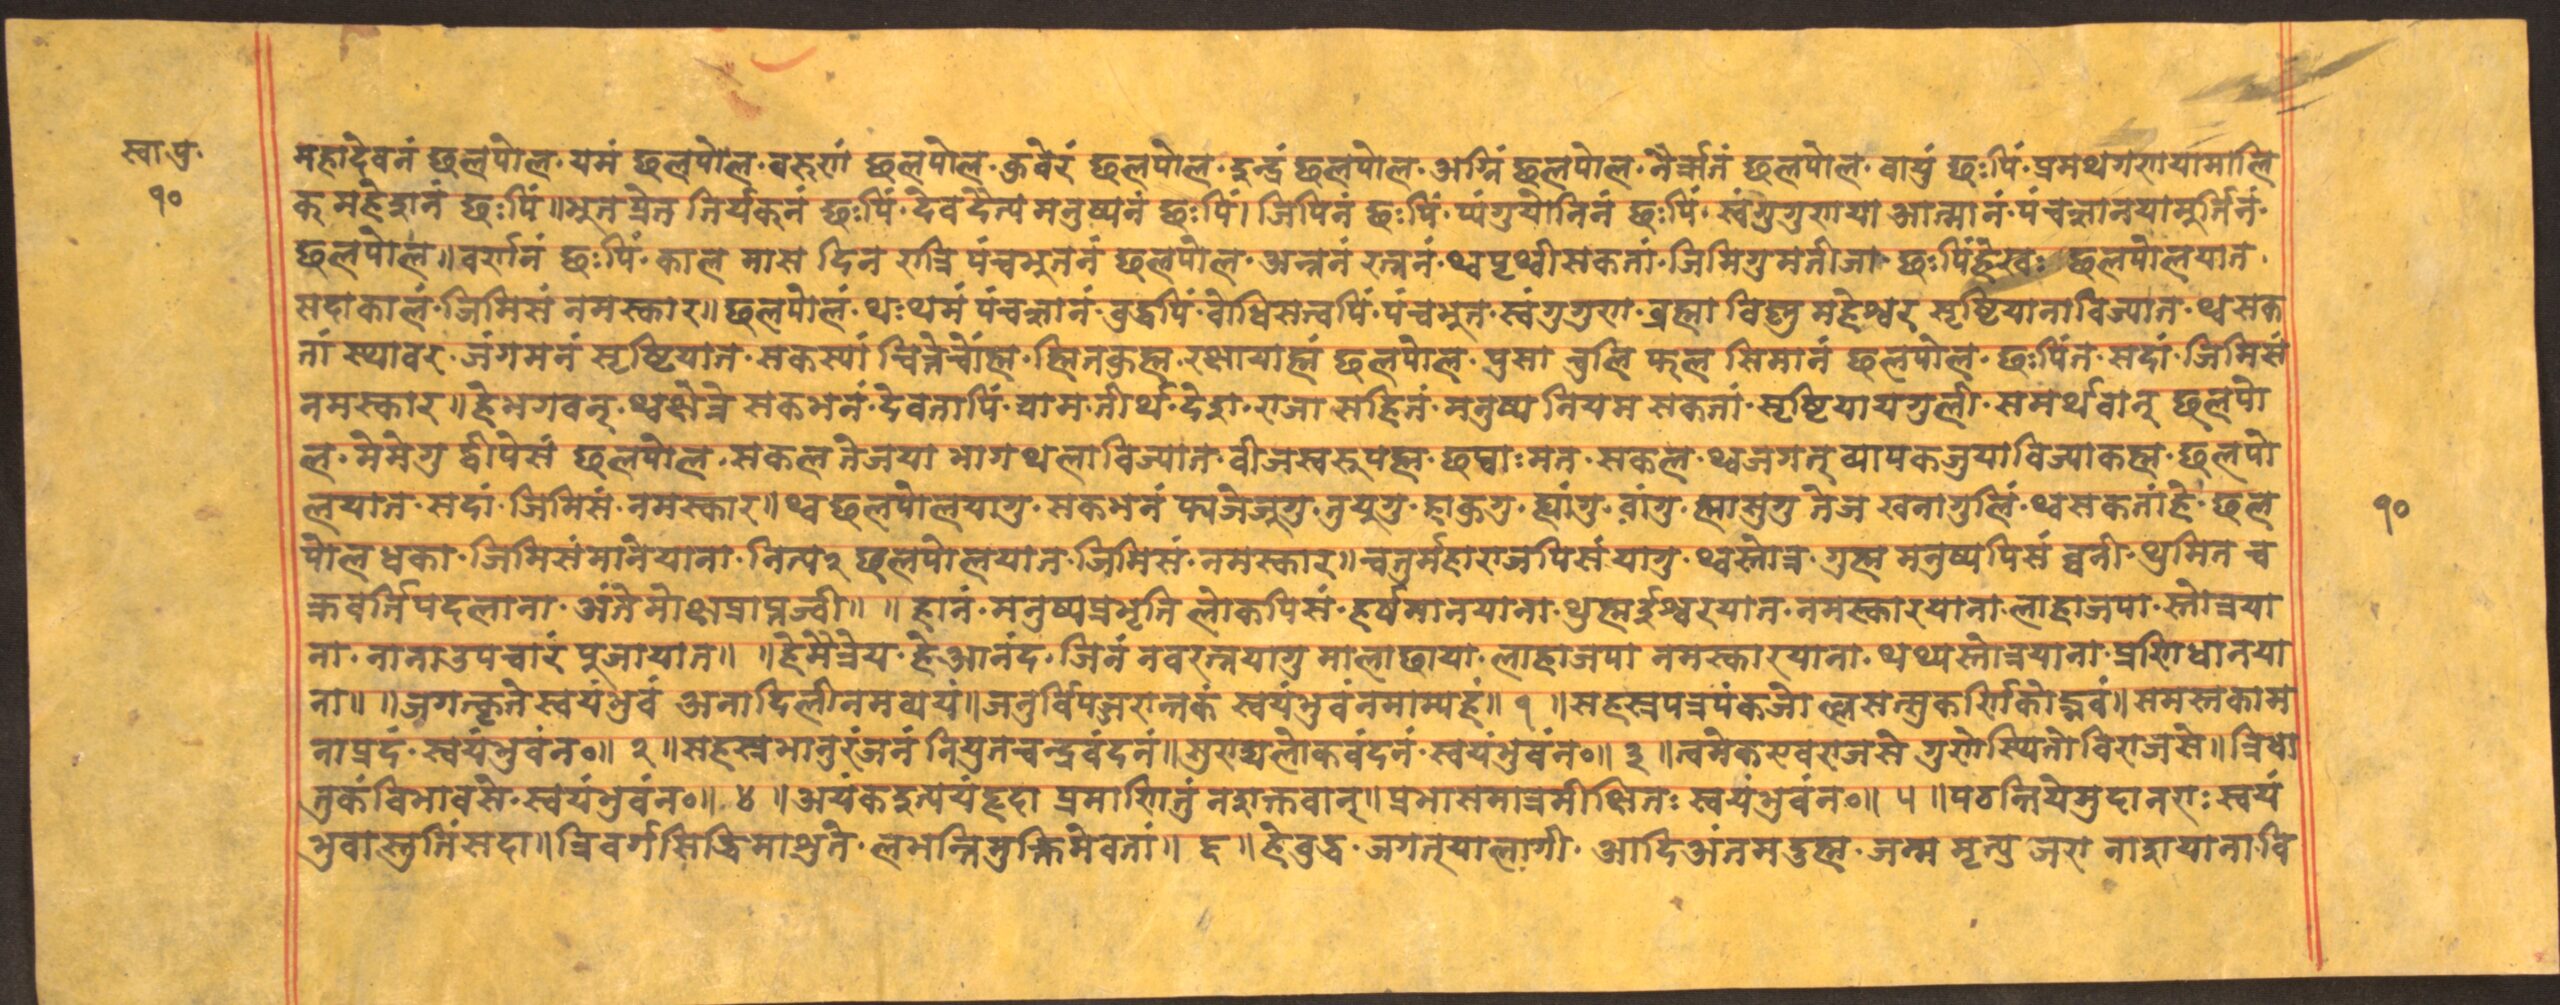 स्वा पु.
१०
महादेवनं छलपोल. यमं छलपोल. वरुणं छलपोल. कुवेरं छलपोल. इन्द्रं छलपोल. अग्निं छलपोल. नैर्ऋतनं छलपोल. वायुं छःपिं. प्रमथगणयामालि
क महेशनं छःपिं॥ भुत प्रेत तिर्यकनं छःपिं. देवदैत्य मनुष्यनं छःपिं। जिपिनं छःपिं. प्यंगुयोनिनं छःपिं. स्वंगुगुणया आत्मानं. पंचज्ञानयामुर्तिनं.
छलपोल॥ वर्णनं छःपिं. काल मास दिन रात्रि पंचभुतनं छलपोल. अन्ननं रत्ननं. थ्व पृथ्वीसकतां. जिमिगुमतीजा. छःपिंहेखः छलपोलयात.
सदाकालं. जिमिसं नमस्कार॥ छलपोलं. थःथमं पंचज्ञानं. वुद्धपिं. वोधिसत्वपिं. पंचभुत. स्वंगुगुण. व्रह्मा विष्णु महेश्वर सृष्टियानाविज्यात. थ्व सक
तां स्थावर. जंगमनं सृष्टियात. सकस्यां चित्ते चोंह्म. हितकुह्म. रक्षायाह्मं छलपोल. पुसा चुलि फल सिमानं छलपोल. छःपिंत. सदां. जिमिसं
नमस्कार॥ हे भगवन्. थ्व क्षेत्रे सकभनं. देवतापिं. ग्राम. तीर्थ. देश. राजा सहितं. मनुष्य नियम सकतां. सृष्टियायगुली. समर्थवान् छलपो
ल. मेमेगु द्वीपेसं छलपोल. सकल तेजया भाग थलाविज्यात. वीजस्वरुपह्म. छघाःमत. सकल. थ्व जगत् व्यापकजुयाविज्याकह्म. छलपो
लयात. सदां. जिमिसं. नमस्कार॥ थ्व छलपोलयागु. सकभनं फ्यलेजूगु. तुयुगु. हाकुगु. ह्यांगु. वांगु. ह्मासुगु तेज खनागुलिं. थ्व सकतां हे. छल
पोल धका. जिमिसंमानेयाना. नित्य२ छलपोलयात. जिमिसं. नमस्कार॥ चतुर्महाराजपिसं यागु. थ्व स्तोत्र. गुह्म मनुष्यपिसं व्वनी. थुमित च
क्रवर्तिपदलाना. अंते मोक्षप्राप्तज्वी॥ ॥ हानं. मनुष्यप्रभृति लोकपिसं. हर्षमानयाना. थुह्म ईश्वरयात. नमस्कारयाना लाहाजपा. स्तोत्रया
ना. नानाउपचारं पुजायात॥ ॥ हे मैत्रेय. हे आनंद. जिनं नवरत्नयागु मालाछाया. लाहाजपा नमस्कारयाना. थथ्य स्तोत्रयाना. प्रणिधानया
ना॥ ॥ जगत्कृते स्वयंभुवं अनादिलीनमव्ययं॥ जनुर्विपज्जरान्तकं स्वयंभुवंनमाम्यहं॥ १ ॥ सहस्रपत्रपंकजोल्लसत्सुकर्णिकोद्भवं॥ समस्तकाम
नाप्रदं. स्वयंभुवंन०॥ २ ॥ सहस्रभानुरंजनं नियुतचन्द्रवंदनं॥ सुराद्यलोकवंदनं. स्वयंभुवंन०॥ ३ ॥ त्वमेक एवराजसे गुणोस्थितो विराजसे॥ त्रिधा
तुकंविभावसे. स्वयंभुवंन०॥ ४ ॥ अयंकइत्ययंहृदा प्रमाणितुं नशक्तवान्॥ प्रभासमात्रमीक्षितः स्वयंभुवंन०॥ ५ ॥ पठन्तियेमुदानराः स्वयं
भुवास्तुतिंसदा॥ त्रिवर्गसिद्धिमाश्रुते. लभन्तिमुक्तिमेवतां॥ ६ ॥ हे वुद्ध. जगत्यालागी. आदिअंतमदुह्म. जन्म मृत्यु जरा नाशयाना वि
१०